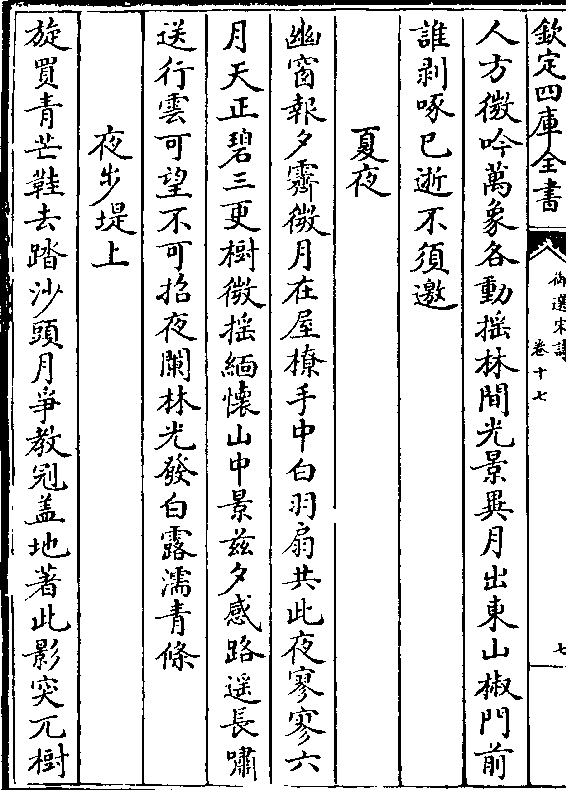 欽定四庫全書
御選宋詩
卷十七
七
人方微吟萬象各動揺林間光景異月出東山椒門前
誰剥啄已逝不須邀
夏夜
幽窗報夕霽微月在屋橑手中白羽扇共此夜寥寥六
月天正碧三更樹微揺緬懷山中景兹夕感路遥長嘯
送行雲可望不可招夜闌林光發白露濡青條
夜步堤上
旋買青芒鞋去踏沙頭月爭教冠盖地著此影突兀樹